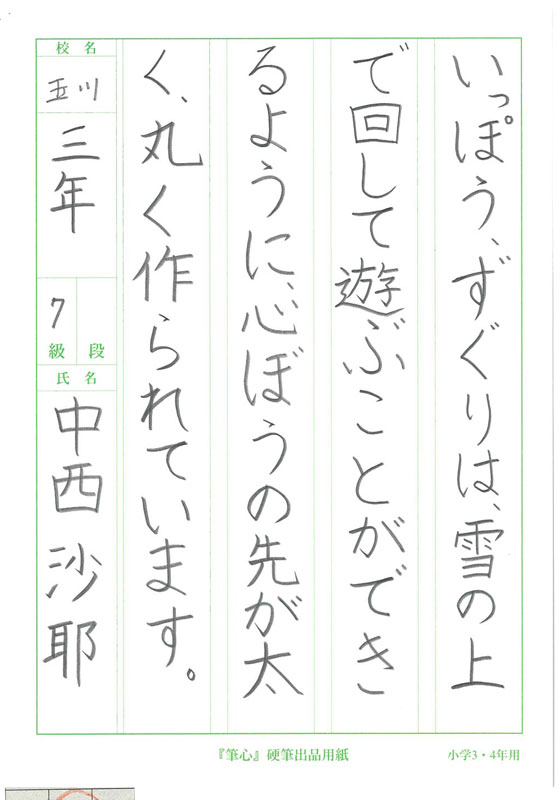 いっぽう、ずぐりは、雪の上
で回して遊ぶことができ
るように、心ぼうの先が太
く、丸く作られています。
校名
玉川
三年
7
級 段
氏名
中西 沙耶
『筆心』硬筆出品用紙
小学3・4年用